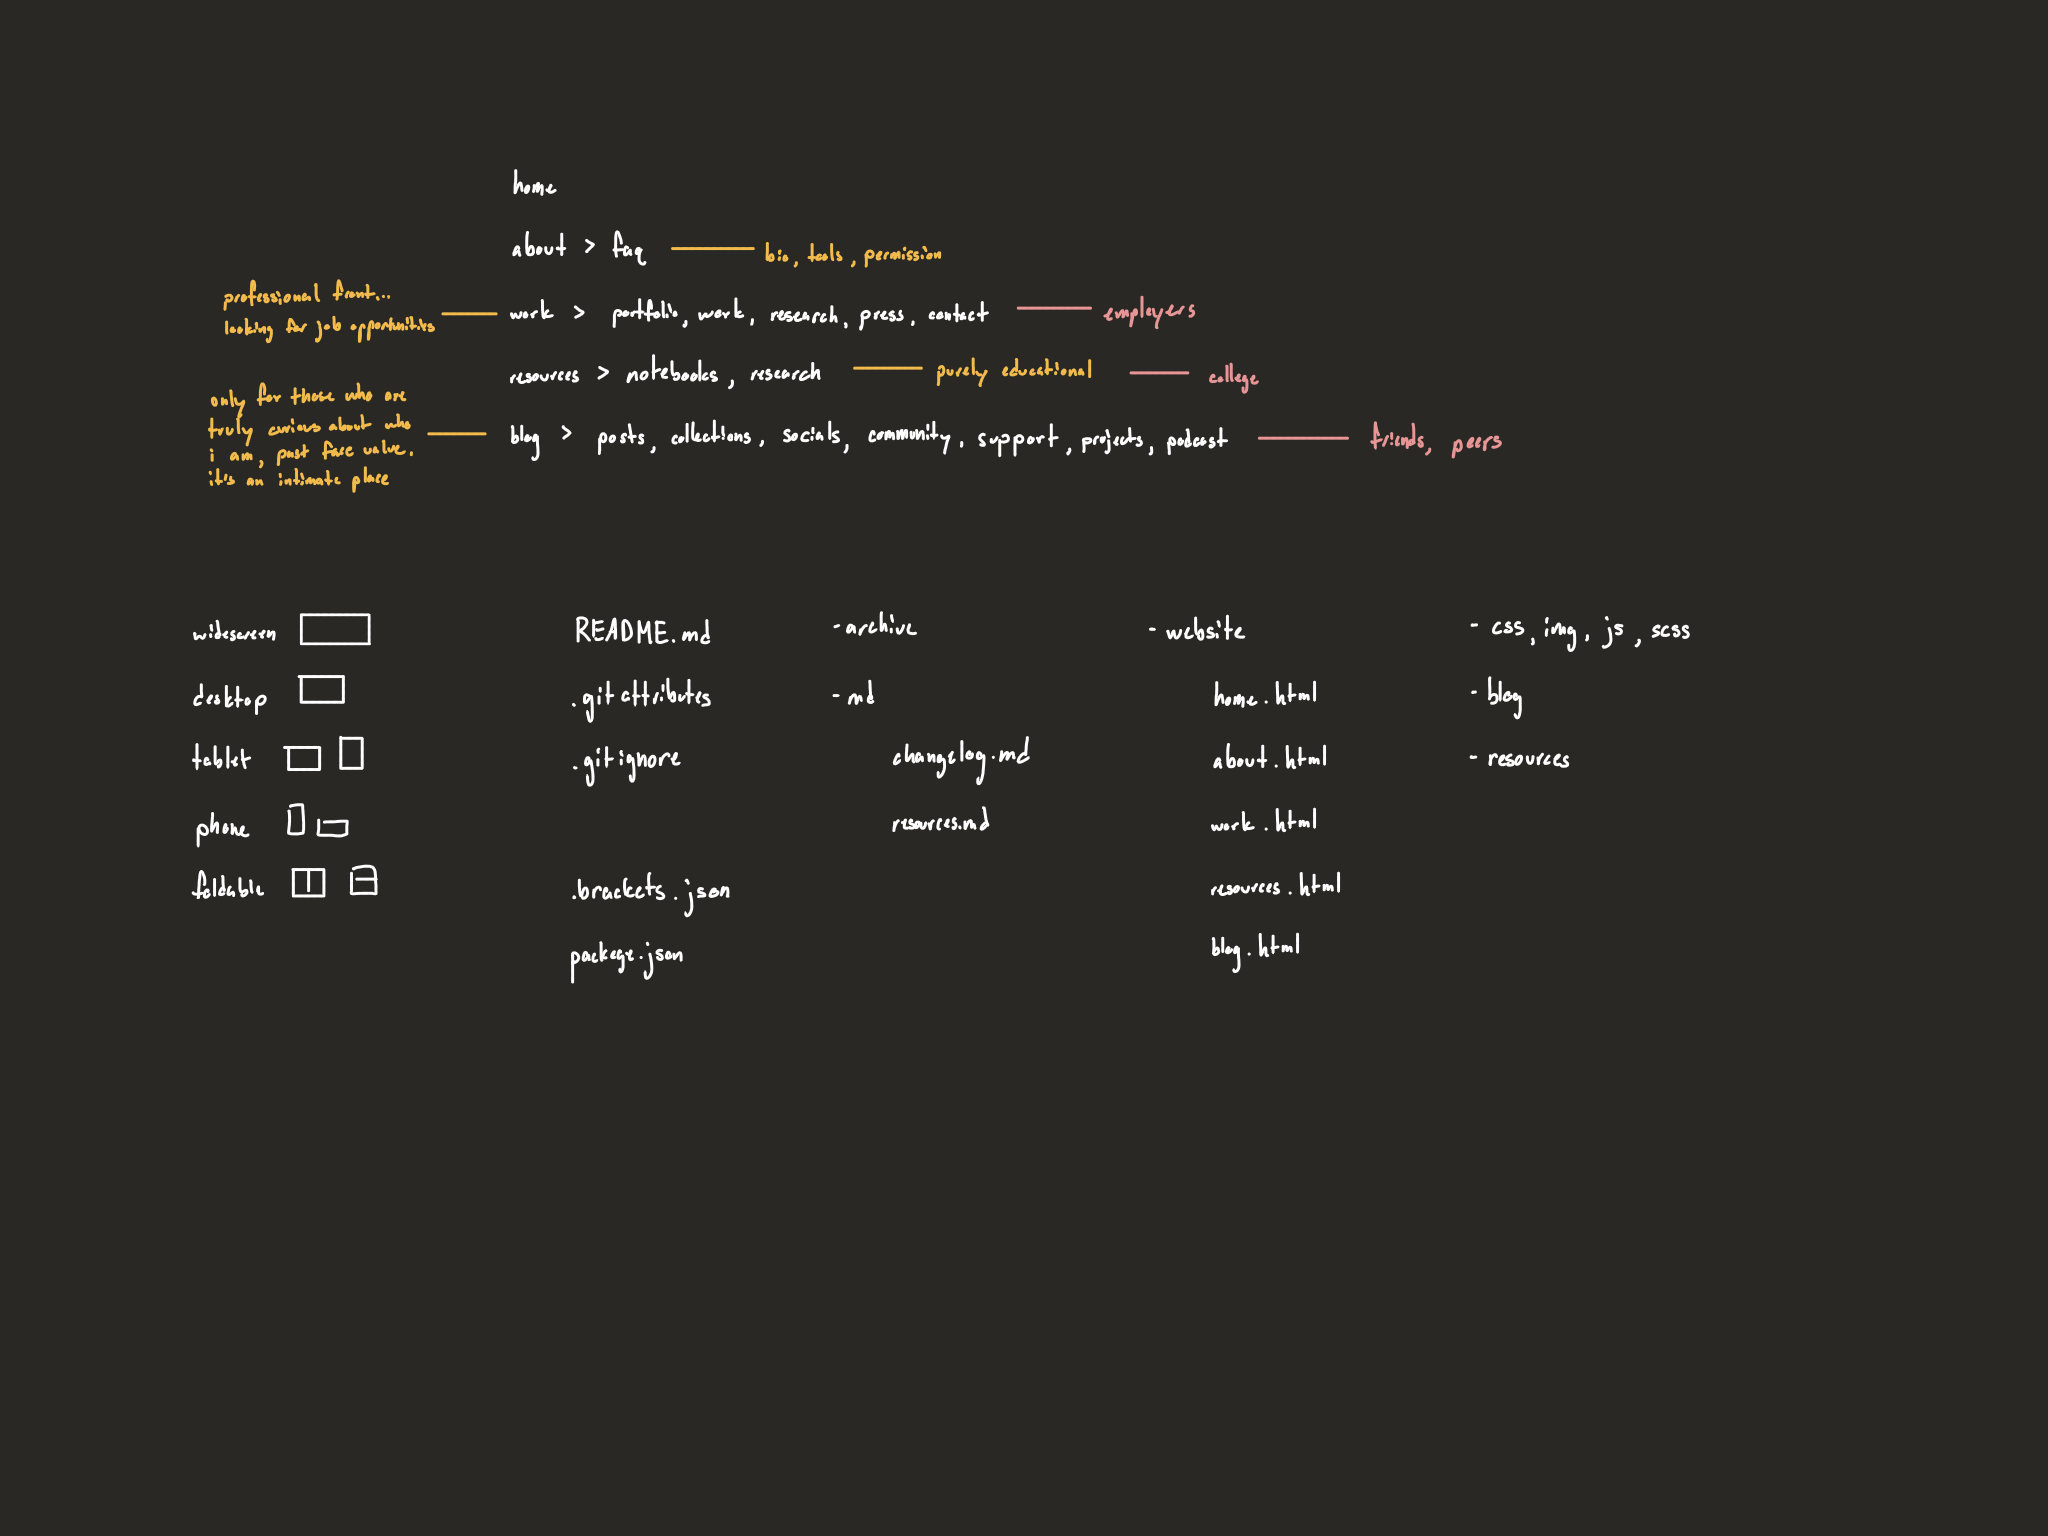 home
about > faq bio, tools, permission
professional front...
looking for job opportunities
work > portfolio, work, research, press, contact employers
resources > notebooks, research purely educational college
only for those who are
truly curious about who
i am, past face value.
it's an intimate place
blog > posts, collections, socials, community, support, projects, podcast friends, peers
widescreen
desktop
tablet
phone
foldable
README.md
.gitattributes
.gitignore
.brackets.json
package.json
- archive
- md
changelog.md
resources.md
- website
home.html
about.html
work.html
resources.html
blog.html
- css, img, js, scss
- blog
- resources